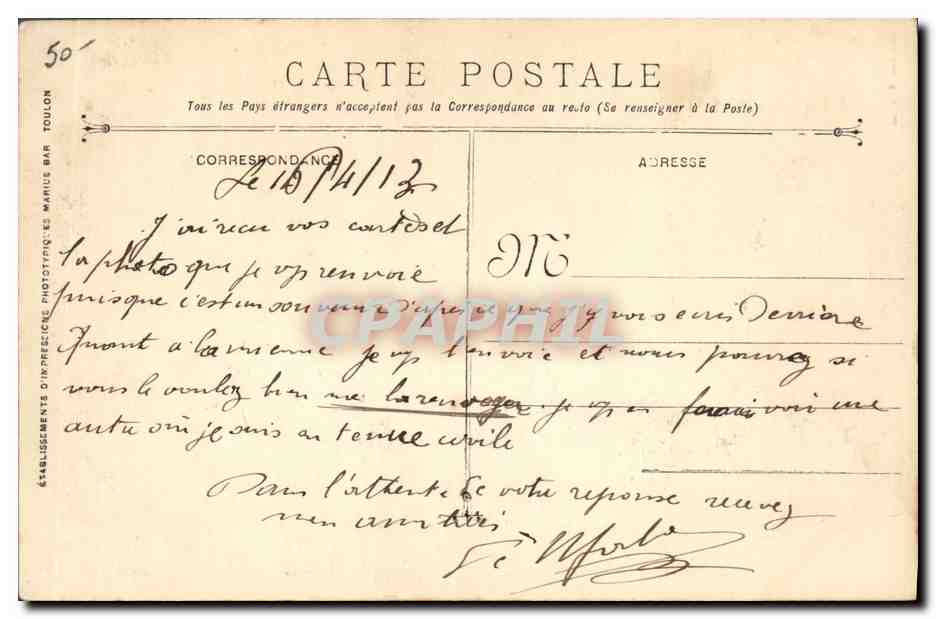 50
CARTE POSTALE
Tous les Pays étrangers n'acceptent pas la Correspondance au recto (Se renseigner à la Poste)
CORRESPONDANCE
ADRESSE
ÉTABLISSEMENTS D'IMPRESSIONS PHOTOTYPIQUES MARIUS BAR TOULON
M
Le 16/4/13
J'ai reçu vos cartes et
la photo que je vs renvoie
puisque c'est un souvenir d'après ce que j'y vois écris Derrière
Quant à la mienne je vs l'envoie et vous pouvez si
vous le voulez bien me la renvoyer je vs en ferai voir une
autre où je suis en tenue civile
Dans l'attente de votre reponse recevez
mon amitiés
CPAPHIL